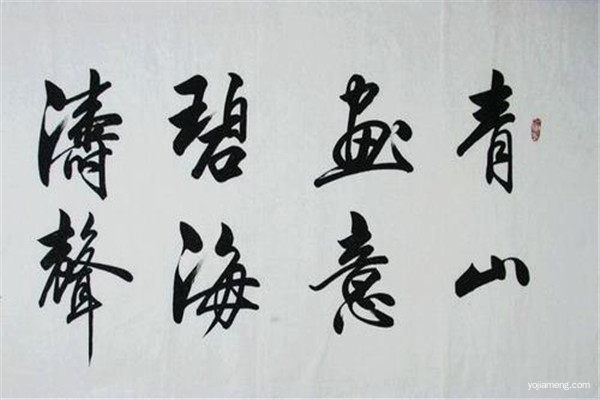 青山
畫意
碧海
濤聲
yojiameng.com